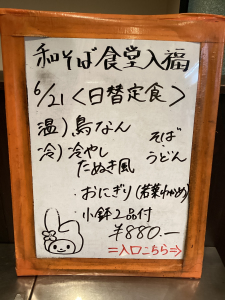 和そば食堂入福
6/21<日替定食>
温)鳥なん
そば
冷)冷やし
たぬき風
・うどん
・おにぎり(若菜わかめ)
・小鉢2品付
¥880.—
=入口こちら⇒